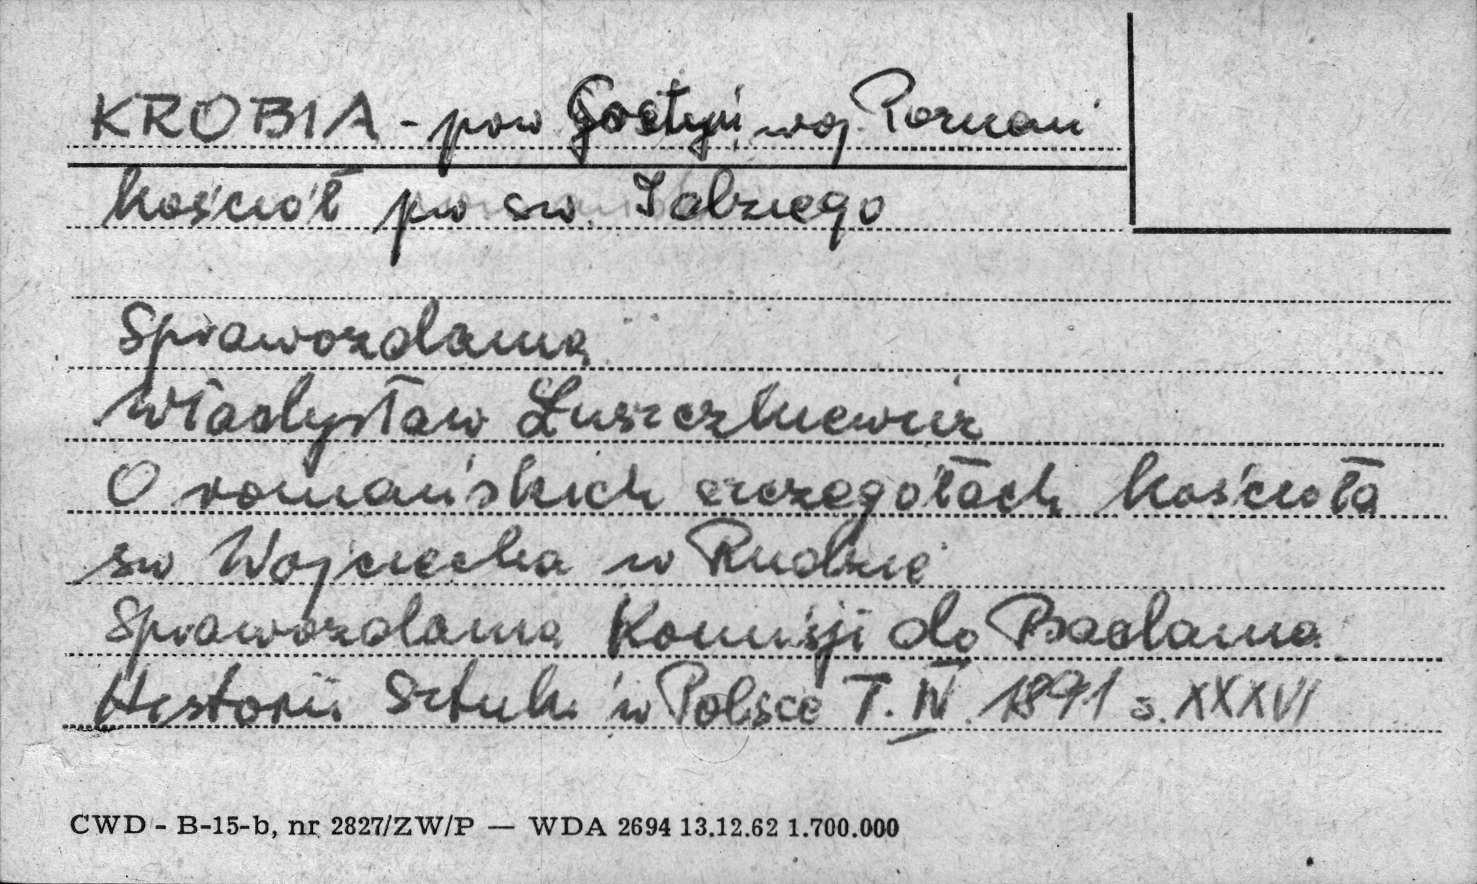 KROBIA - pow Gostyń woj. Poznań
kościół pw św. Idziego
Sprawozdania
Władysław Łuszczkiewicz
O romańskich szczegółach kościoła
św Wojciecha w Rudzie
Sprawozdania Komisji do Badania
Historii Sztuki w Polsce T. IV. 1891 s. XXXVI
CWD - B-15-b, nr 2827/ZW/P — WDA 2694 13.12.62 1.700.000